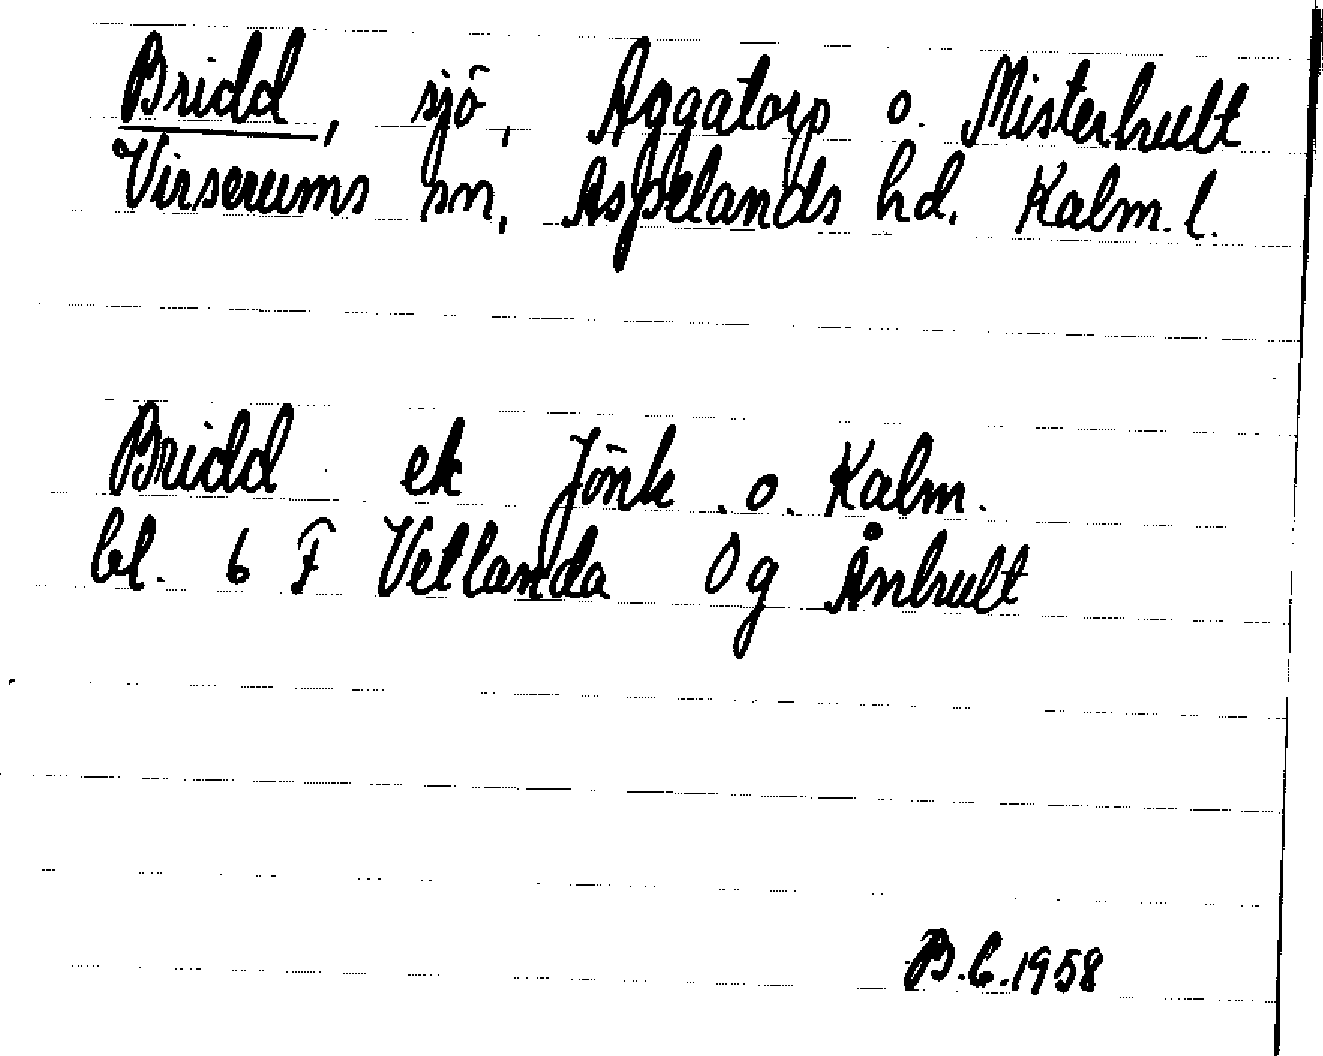 Bridd, sjö, Aggatorp o. Misterhult
Virserums sn, Aspelands hd. Kalm. l.
Bridd ek Jönk. o. Kalm.
bl. 6 F Vetlanda Og Ånhult
B.G.1958